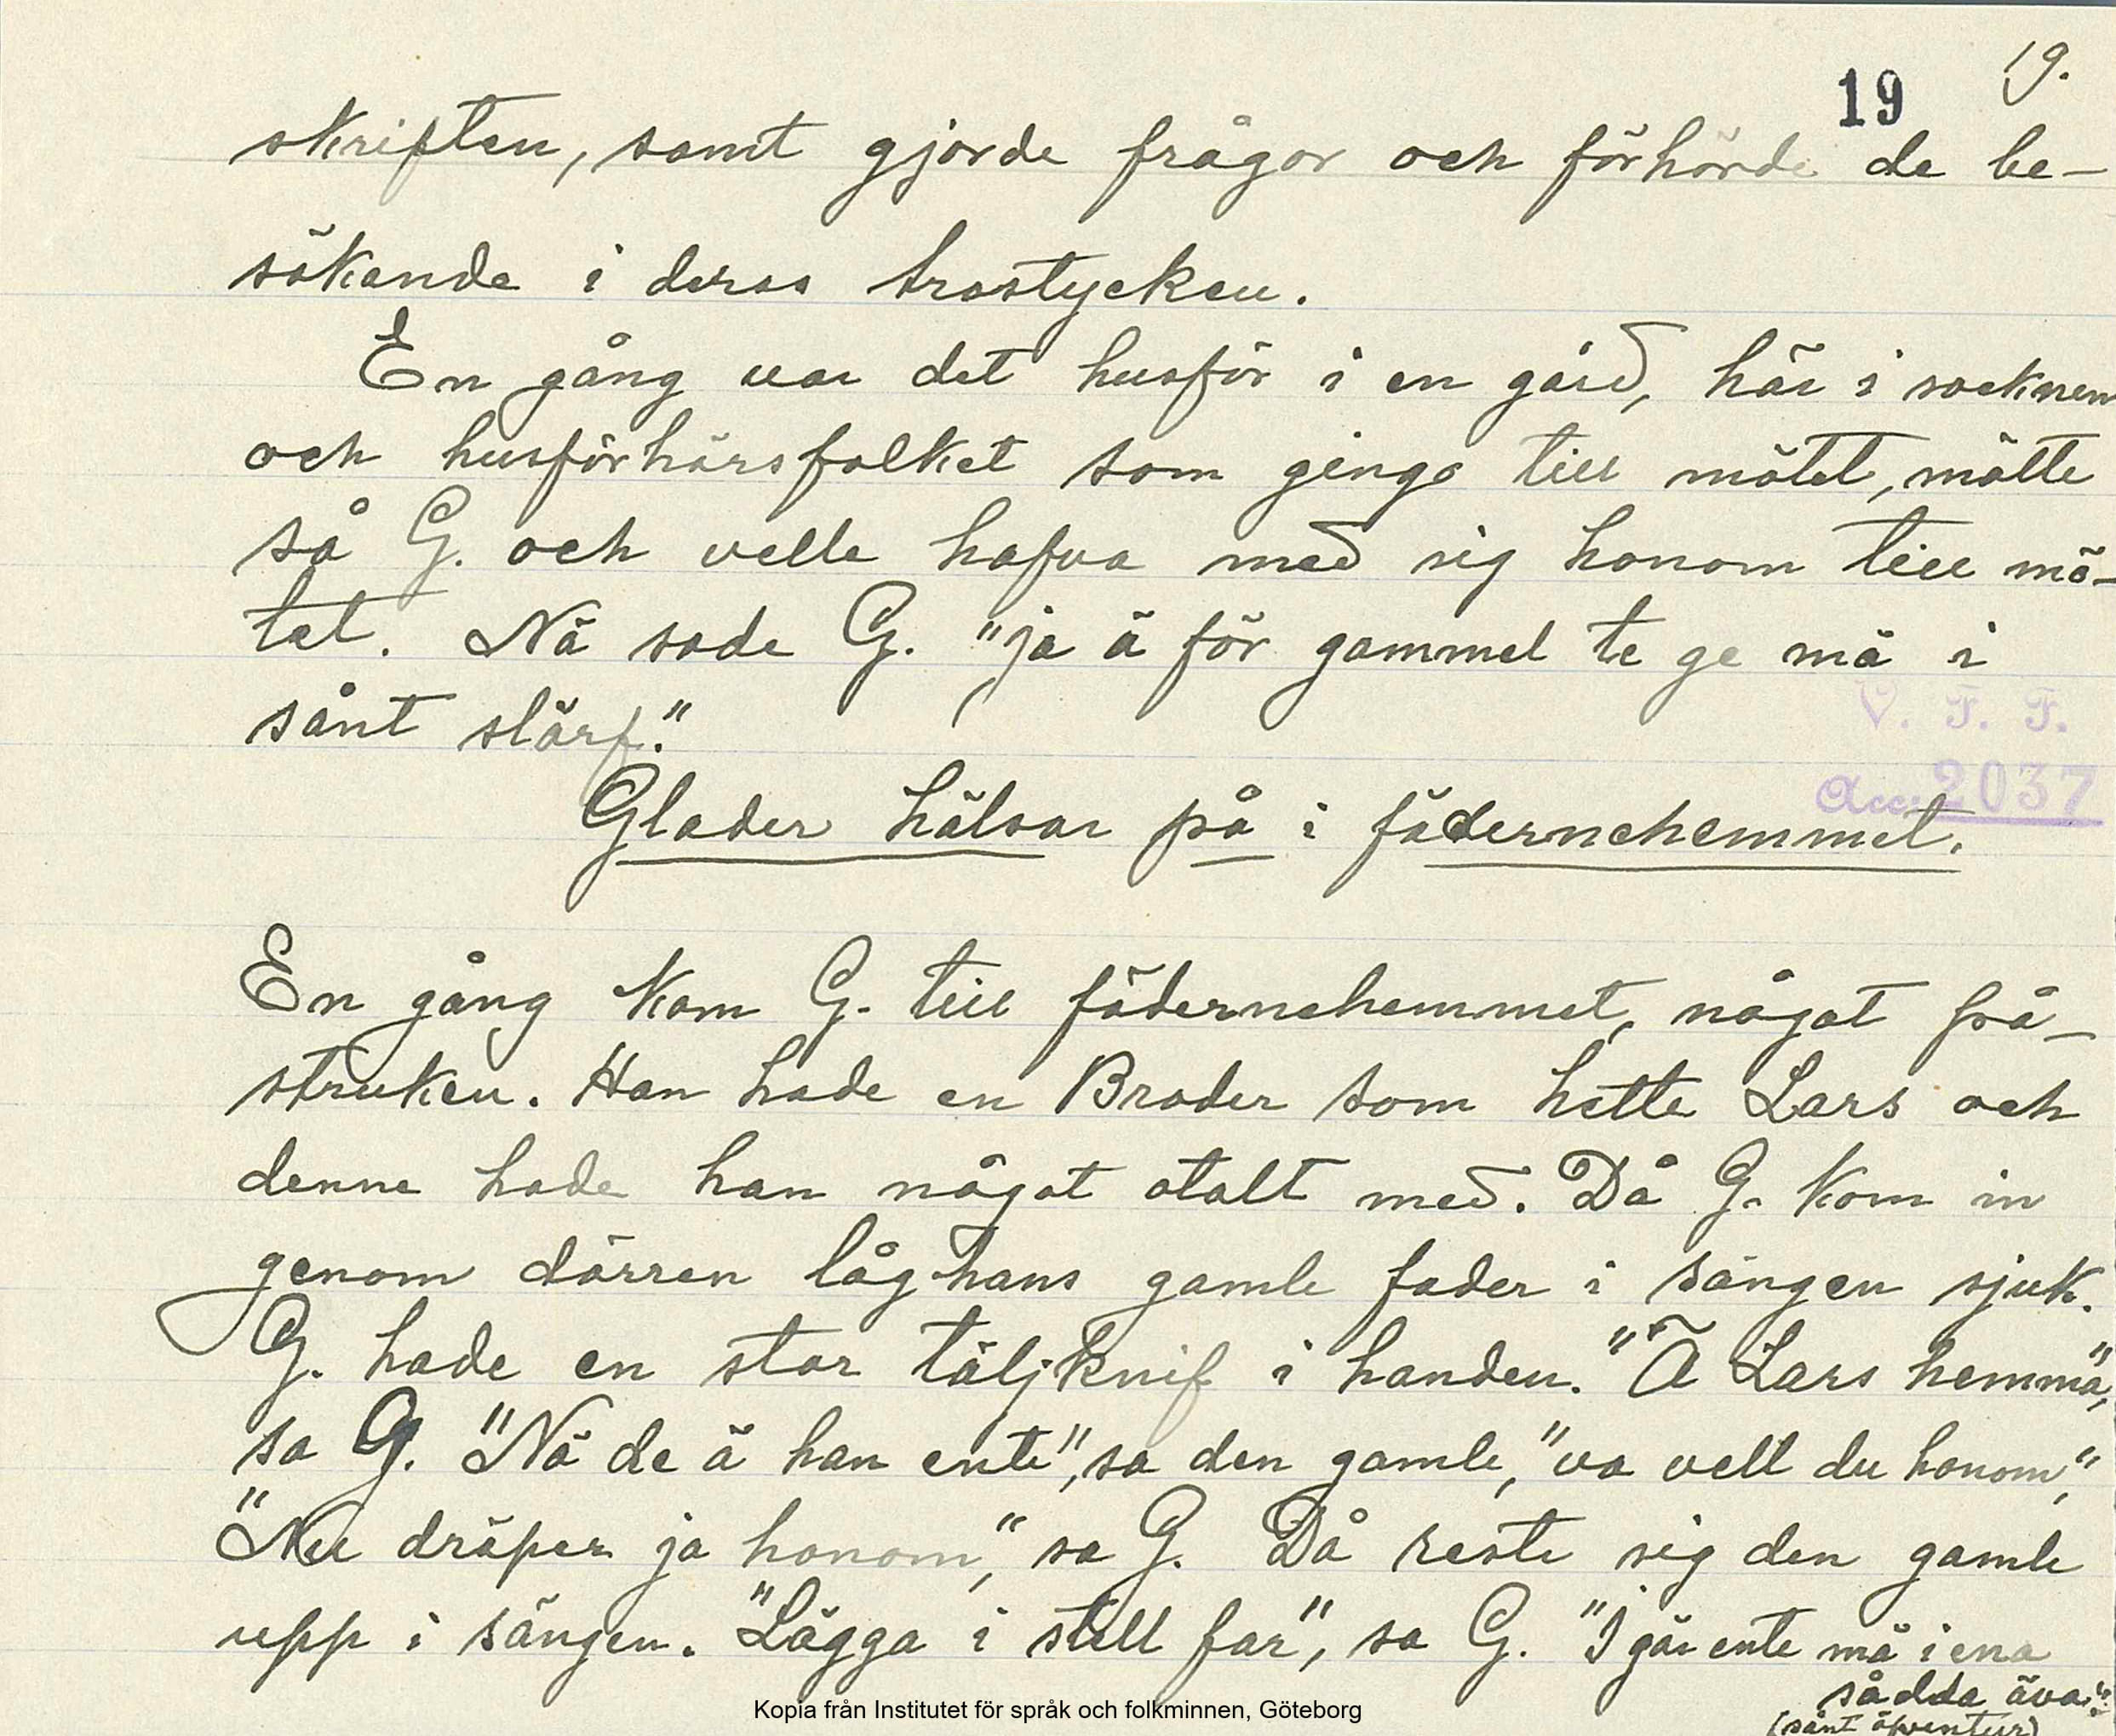 19 19.
skriften, samt gjorde frågor och förhörde de be-
sökande i deras trostycken.
En gång var det husför i en gård, här i socknen
och husförhörsfolket som gingo till mötet, mötte
så G. och velle hafva med sig honom till mö-
tet. Nä sade G. "ja ä för gammel te ge mä i
sånt slärf."
V. F. F.
Acc. 2037
Glader hälsar på i fädernehemmet.
En gång kom G. till fädernehemmet, något på-
struken. Han hade en Broder som hette Lars och
denne hade han något otalt med. Då G. kom in
genom dörren låg hans gamle fader i sängen sjuk.
G. hade en stor täljknif i handen. "Ä Lars hemmä,"
sa G. "Nä de ä han ente", sa den gamle, "va vell du honom,"
"Nu dräper ja honom," sa G. Då reste sig den gamle
upp i sängen. "Lägga i still far", sa G. "I går ente mä i ena
sådda äva."
(sånt äfventur)
Kopia från Institutet för språk och folkminnen, Göteborg